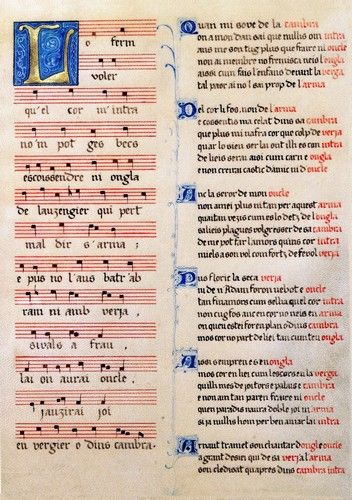 Lo ferm
voler
qu'el cor m'intra
no'm pot ges becs
escoissendre ni ongla
de lauzengier qui pert
mal dir s'arma;
e pus no l'aus batr'ab
ram ni amb verja,
sivals a frau,
lai on aurai oncle,
jauzirai joi
en vergier o dins cambra.
Quan mi sove de la cambra
on a mon dan sai que nuills om intra
ans me son tug plus que fraire ni oncle
non ai membre no fremisca neis l'ongla
aissi cum fais l'enfans devant la verga
tal paor ai no l sai prop de l'arma
Del cor li fos, non de l'arma
e cossentis ma celat dins sa cambra
que plus mi nafra cor que colp de verja
quar lo sieu ser lai ont ill es non intra
de lieis serai aisi cum carn e ongla
e non creirai castic damic ni d oncle
Anc la seror de mon oncle
non amei plus ni tan per aquest arma
quaitan vezis cum es lo detz de l ongla
salieis plagues volgr esser de sa cambra
de me pot far l amors quins cor intra
mieils a son vol com fortz de frevol verja
Pus floric la seca verja
ni de n Adam foron nebot e oncle
tan fin amors cum selha quel cor intra
non cug fos anc en cor no neis en arma
on queu estei for en plan o dins cambra
mos cor no part de liei tan cum ten l ongla
Aissi s empren e s en ongla
mos cor en liei cum l escors en la verga
quill mes de joi tors e palais e cambra
e non am tan paren fraire ni oncle
quen paradis naura doble joi m arma
si ja nuills hom per ben amar lai intra
Arnaut tramet son chantar d ongle e oncle
a grant desiei qui de sa verja l arma
son cledisat quapres dins cambra intra